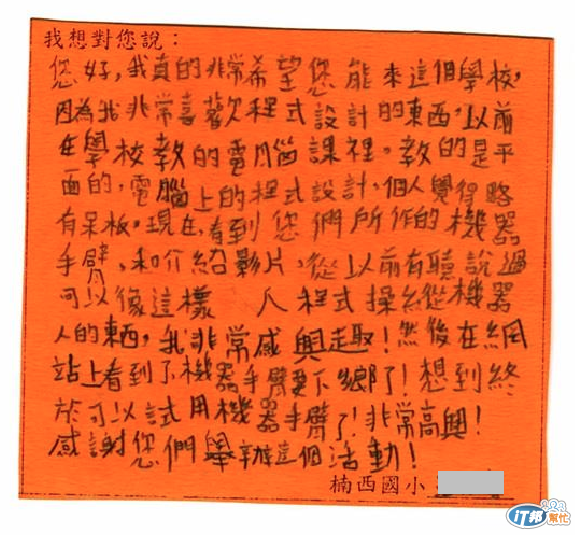 我想對您說：
您好，我真的非常希望您能來這個學校，
因為我非常喜歡程式設計的東西，以前
在學校教的電腦課裡，教的是平
面的，電腦上的程式設計，個人覺得略
有呆板。現在，看到您們所作的機器
手臂，和介紹影片，從以前有聽說過
可以像這樣 人程式操縱機器
人的東西，我非常感興趣！然後在網
站上看到了機器手臂要下鄉了！想到終
於可以試用機器手臂了！非常高興！
感謝您們舉辦這個活動！
楠西國小
iT邦幫忙